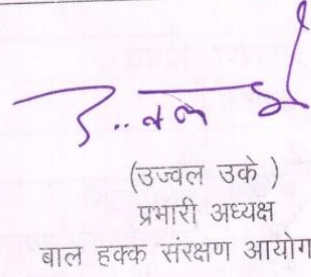 (उज्वल उके )
प्रभारी अध्यक्ष
बाल हक्क संरक्षण आयोग